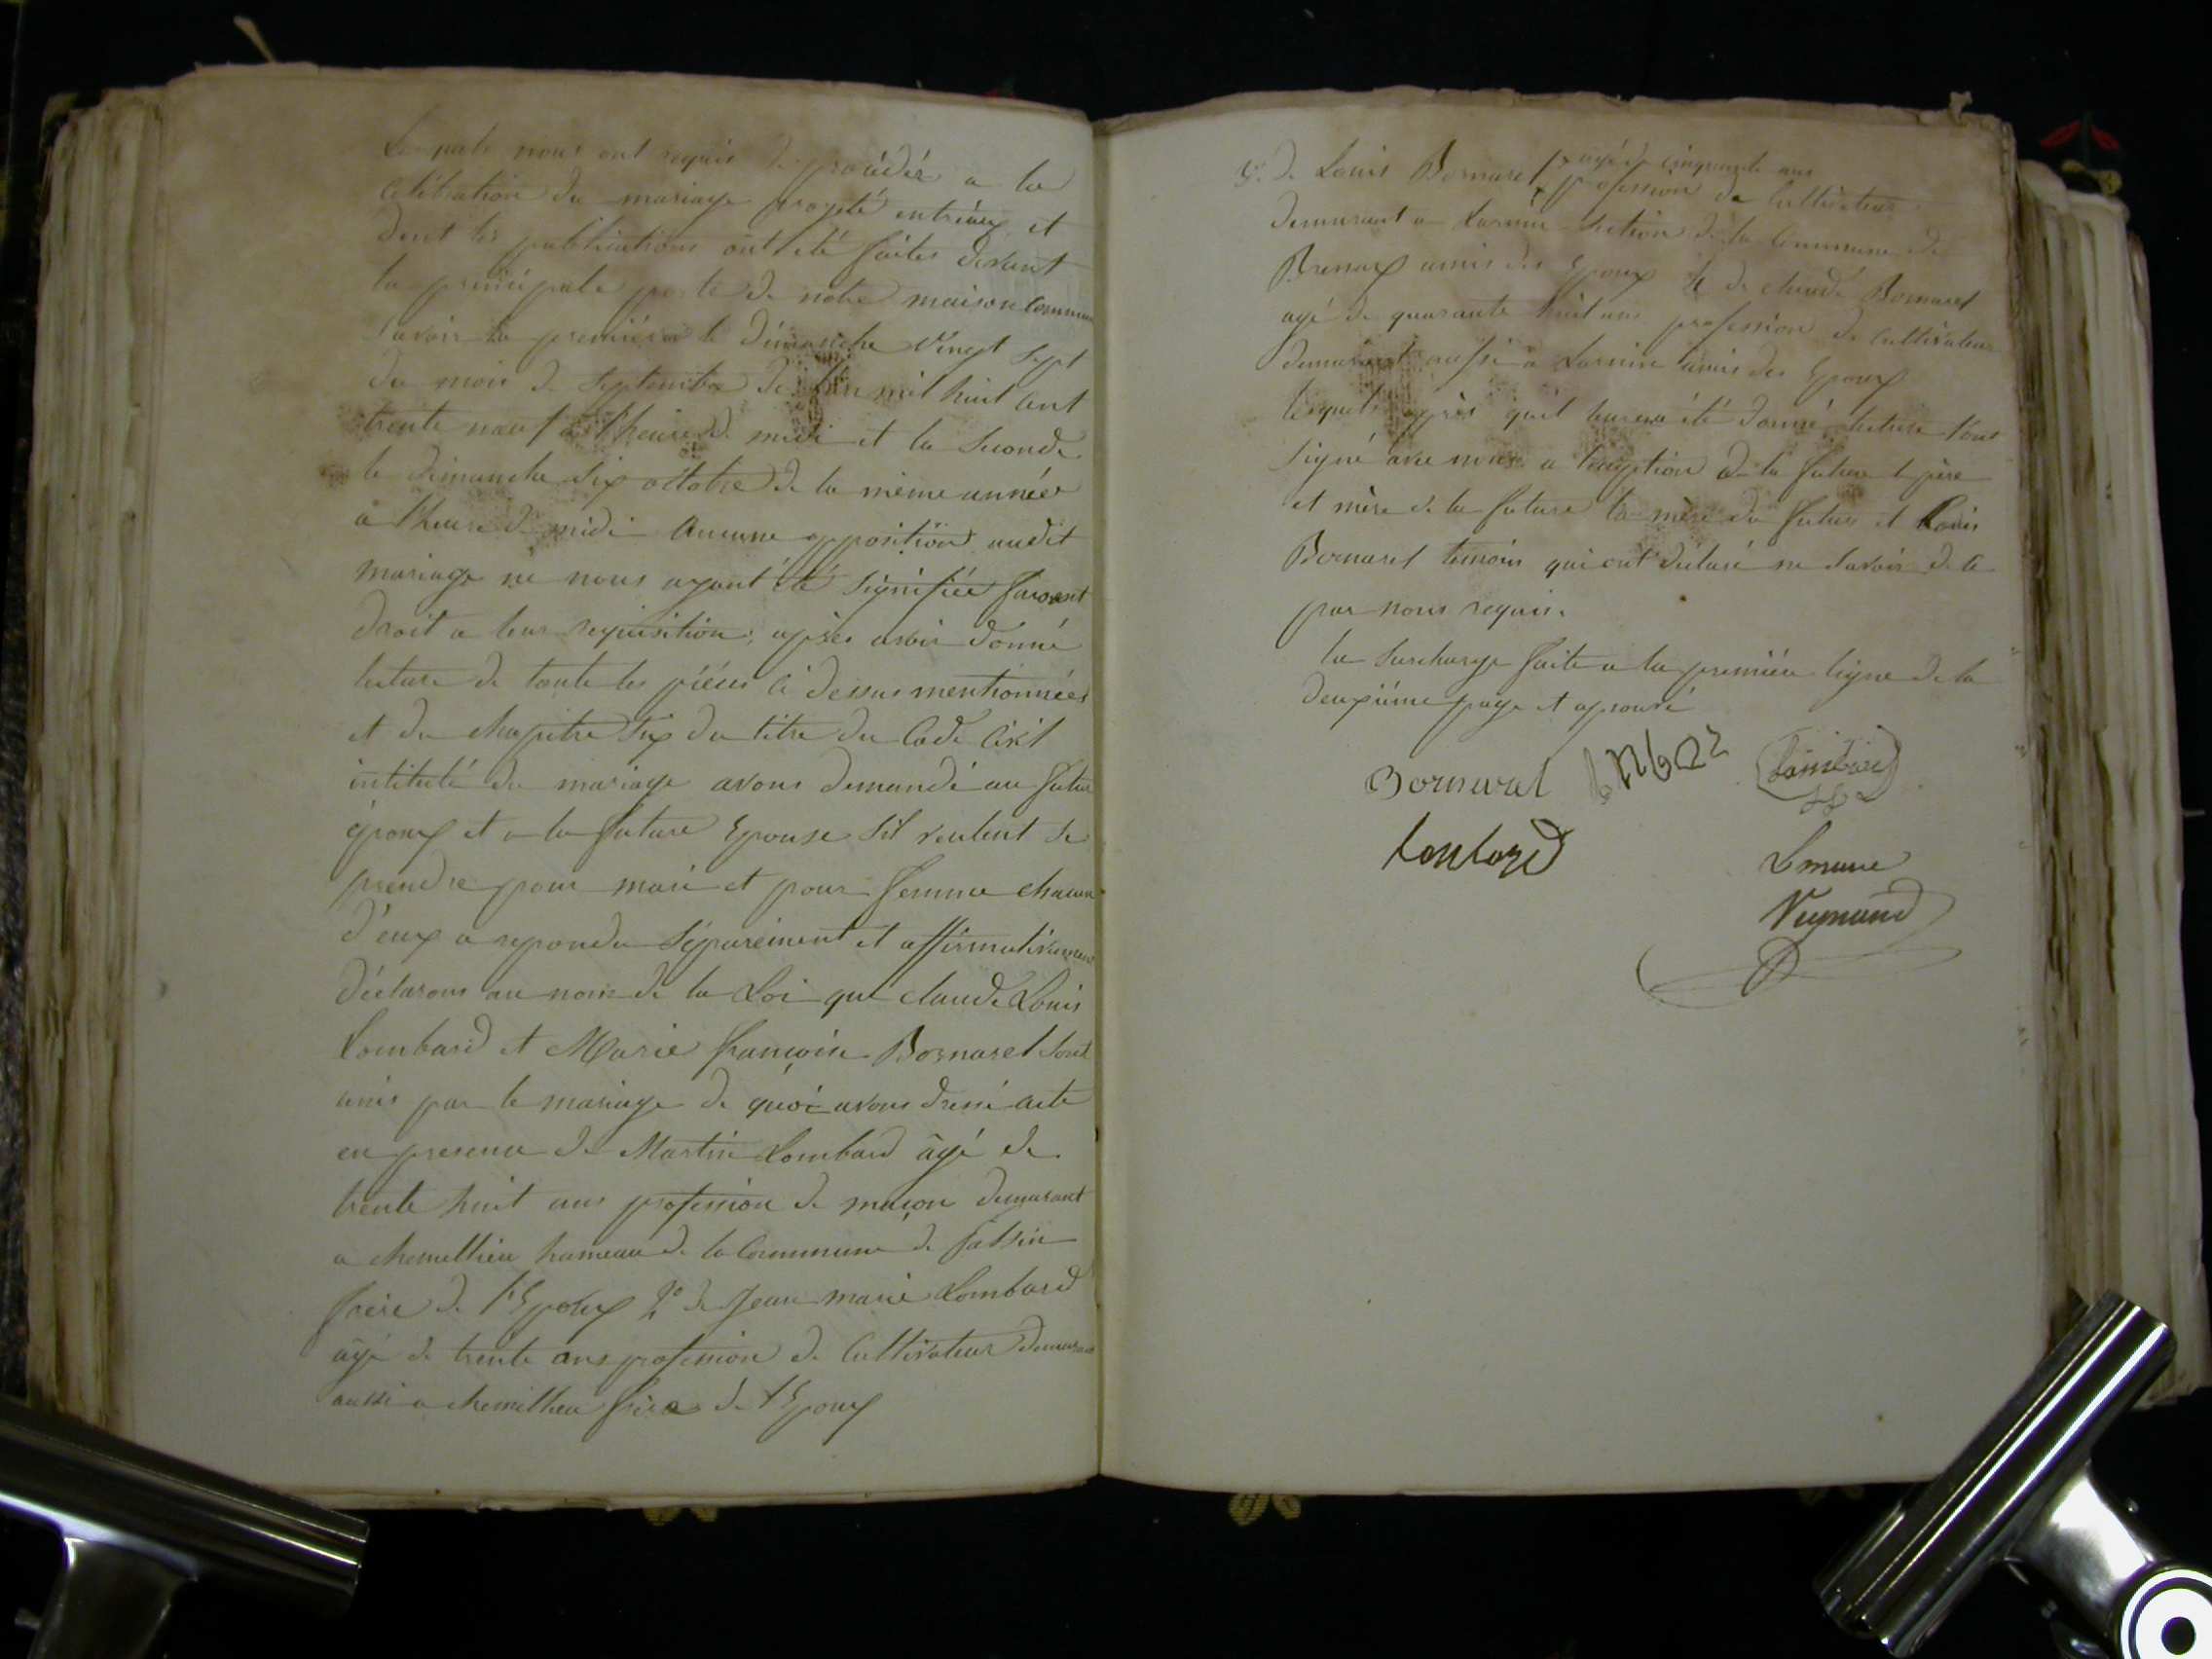 Lesquels nous ont requis de procéder a la
Célébration du mariage projeté entr'eux et
dont les publications ont été faites devant
la principale porte de notre maison Commune
savoir la première le dimanche Vingt Sept
du mois de Septembre de l'an mil huit Cent
trente neuf a l'heure de midi et la Seconde
le dimanche six octobre de la même année
a l'heure de midi Aucune opposition audit
mariage ne nous ayant été Signifiée faisant
droit a leur requisition, après avoir donné
lecture de toute les pièces ci dessus mentionnées
et du chapitre Six du titre du Code Civil
intitulé du mariage avons demandé au futur
époux et a la future Epouse s'il veulent se
prendre pour mari et pour femme chacun
d'eux a repondu Séparément et affirmativement
déclarons au nom de la Loi que Claude Louis
Lombard et Marie françoise Bornarel sont
unis par le mariage de quoi avons dressé acte
en presence de Martin Lombard âgé de
trente huit ans profession de maçon demurant
a chemillieu hameau de la Commune de
frère de l'Epoux 2º de Jean marie Lombard
agé de trente ans profession de Cultivateur demurant
aussi a chemillieu frère de l'Epoux
3º. de Louis Bornarel
agé de cinquante ans
profession de Cultivateur
demurant a section de la Commune de
amis des Epoux 4 de claude Bornarel
agé de quarante huit ans profession de Cultivateur
demurant aussi a amis des Epoux
lesquels après quil leur a été donné lecture
signé avec nous a l'exception de la future le père
et mère de la future la mère du futur et Louis
Bornarel temoin qui ont déclaré ne savoir de ce
par nous requis.
la Surcharge faite a la première ligne de la
deuxième page et aprouvé
Bornarel
Lombard
Lombard
Le maire
Reymond